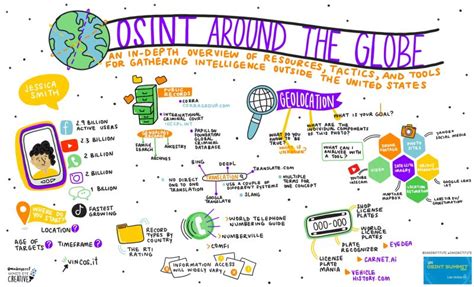 OSINT AROUND THE GLOBE
AN IN-DEPTH OVERVIEW OF RESOURCES, TACTICS, AND TOOLS
FOR GATHERING INTELLIGENCE OUTSIDE THE UNITED STATES
JESSICA
SMITH
2.9 BILLION
ACTIVE USERS
2.3 BILLION
2 BILLION
2 BILLION
FASTEST
GROWING
WHERE DO
YOU START?
LOCATION?
AGE OF
TARGETS?
TIMEFRAME?
VINCOS.IT
MIND'S EYE
CREATIVE
PUBLIC
RECORDS
INTERNATIONAL
CRIMINAL
COURT
FAMILY
SEARCH
ANCESTRY
PAPILLON
FOUNDATION
GLOBAL
CRIMINAL
DATABASE
ARCHIVES
GEOLOCATION
WHAT IS YOUR GOAL?
WHAT ARE THE
INDIVIDUAL COMPONENTS
OF THIS PHOTO?
WHAT DO
YOU KNOW
TO BE
TRUE?
WHAT CAN I
ANALYZE WITH
A TOOL?
BING
DEEPL
TRANSLATE.COM
TRANSLATION
NO DIRECT
ONE TO ONE
TRANSLATION
USE A COUPLE OF
DIFFERENT SYSTEMS
MULTIPLE
TERMS FOR
ONE CONCEPT
SLANG
RECORD
TYPES BY
COUNTRY
THE RTI
RATING
WORLD TELEPHONE
NUMBERING GUIDE
NUMBERVILLE
COMFI
INFORMATION ACCESS
WILL WIDELY VARY
000-000
WORLD
LICENSE
PLATES
PLATE
RECOGNIZER
LICENSE
PLATE
MANIA
EYEDEA
CARNET.AI
VEHICLE
HISTORY.COM
OSINT SUMMIT